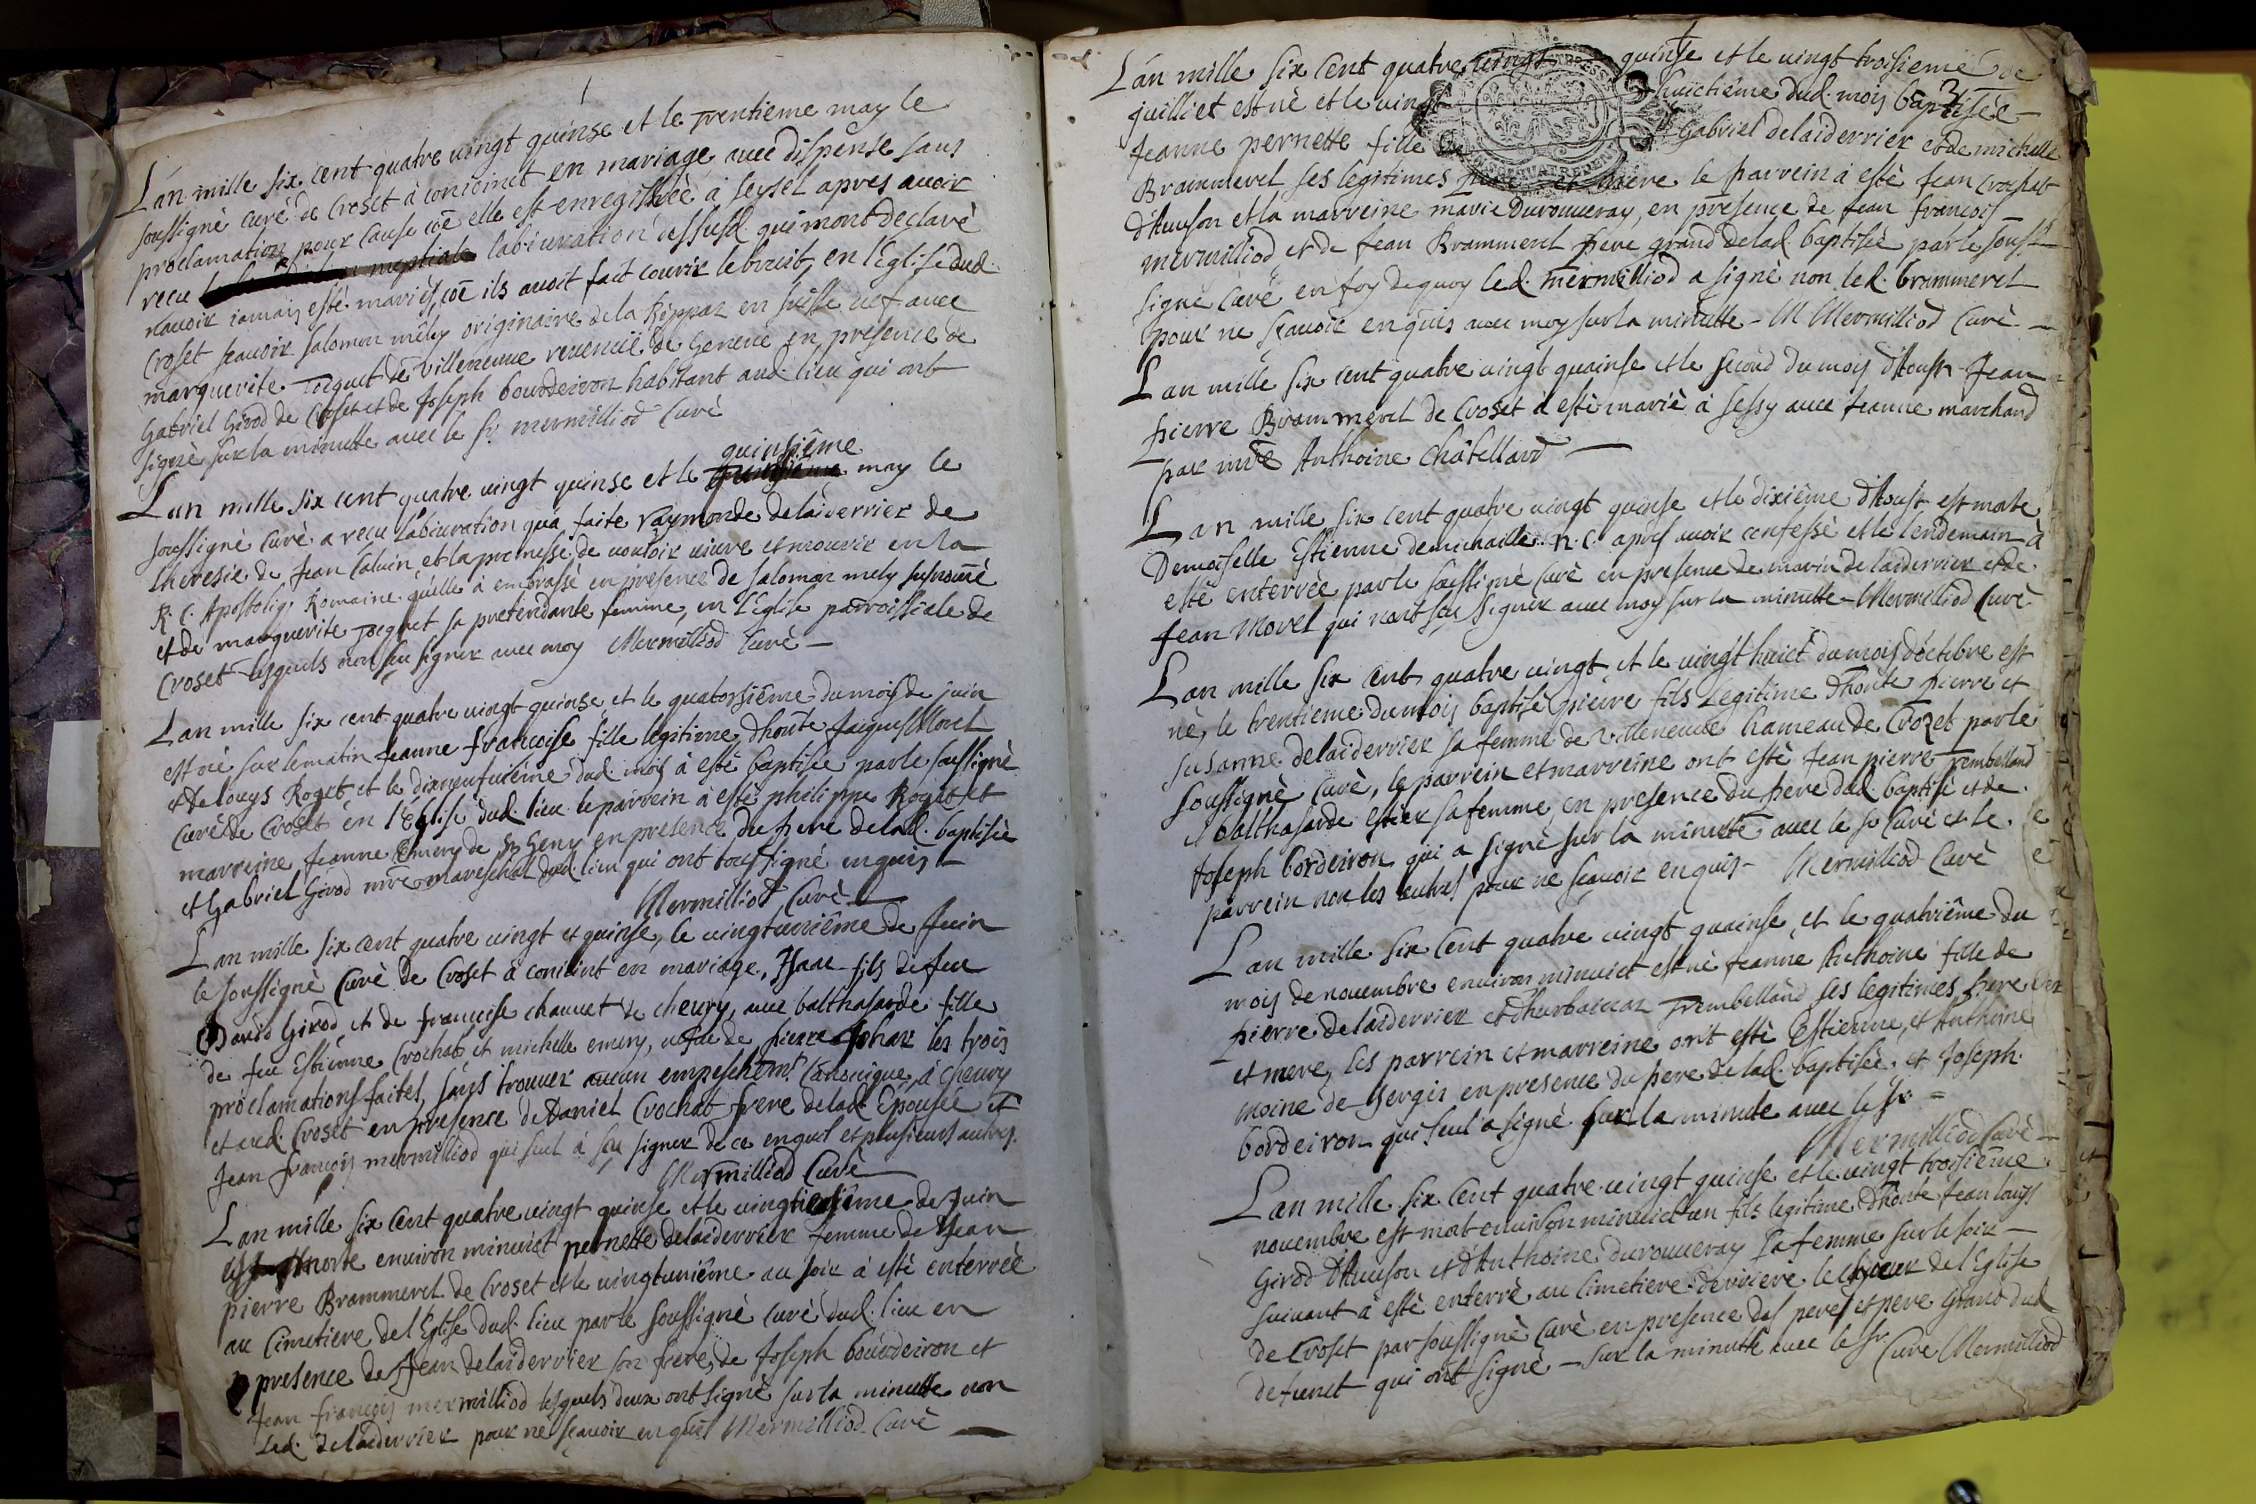 L'an mille six cent quatre vingt quinse et le trentieme may le
soussigné curé de Croset à conioinct en mariage avec dispense sans
proclamation pour cause coē elle est enregistrée à Seysel apres avoir
receu l'abiuration dessusd. qui mont declaré
n'avoir iamais esté mariés, coē ils avoit fait courir le bruit en l'Eglise dud.
Croset scavoir Salomon mely originaire de la en suisse avec
marguerite Toequet de villeneuve revenuë de Geneve en presence de
Gabriel Girod de Croset et de Joseph bourdeiron habitant aud. lieu qui ont
signé sur la minutte avec le sr. mermilliod Curé
quinsiême
Lan mille six cent quatre vingt quinse et le may le
soussigné curé a receu l'abiuration qu'a faite Raymonde delaiderrier de
lheresie de Jean Calvin et la promesse de vouloir vivre et mourir en la
R. C. Apostoliq. Romaine quelle à embrassé en presence de Salomon mely susnomé
et de marguerite Toequet sa pretendante femme, en l'Eglise parroissiale de
Croset lesquels non sceu signer avec moy Mermilliod Curé
Lan mille six cent quatre vingt quinse et le quatorsiême du mois de juin
est née sur le matin Jeanne francoise fille legitime d'honte Jaques Morel
et de louys Roget et le dixneufuiême dud. mois à esté baptisée par le soussigné
curé de Croset en l'Eglise dud. lieu le parrein à esté philippe Roget et
marreine Jeanne Emery de St Geny en presence du pere de lad. baptisée
et Gabriel Girod mre mareschal dud. lieu qui ont soussigné enquis
Mermilliod Curé
Lan mille six cent quatre vingt et quinse, le vingtuniême de Juin
le soussigné Curé de Croset à conioint en mariage, Isaac fils de feu
David Girod et de francoise chauvet de chevry, avec balthasarde fille
de feu Estienne Crochat et michelle emery, vefue de pierre les trois
proclamations faites, sans trouver aucun empeschemt. Canonique à Chevry
et aud. Croset en presence de Daniel Crochat frere de lad. Epousée et
Jean francois mermilliod qui seul à sceu signer de ce enquis et plusieurs autres.
Mermilliod Curé
Lan mille six cent quatre vingt quinse et le vingtiesme de Juin
est morte environ minuict pernette delaiderrier femme de Jean
pierre Brammerel de Croset et le vingtuniême au soir à esté enterrée
au Cimetiere de l'Eglise dud. lieu par le soussigné curé dud. lieu en
presence de Jean delaiderrier son frere, de Joseph bourdeiron et
Jean francois mermilliod lesquels deux ont signé sur la minutte non
led. delaiderrier pour ne scavoir enquis Mermilliod Curé
L'an mille six cent quatre vingt quinse et le vingt troisieme de
juilliet est né et le vingt huictiême dud. mois baptisée
Jeanne pernette fille de Gabriel delaiderrier et de michelle
Brammerel ses legitimes pere et mere le parrein à esté Jean Crochat
d'Avuson et la marreine marie Durouueray, en presence de Jean francois
mermilliod et de Jean Brammerel pere grand de lad. baptisée par le sous
signé Curé en foy de quoy led. mermilliod a signé non led. brammerel
pour ne scavoir enquis avec moy sur la minutte - M Mermilliod Curé
Lan mille six cent quatre vingt quainse et le second du mois d'Aoust Jean
pierre Brammerel de Croset à esté marié à Sessy avec Jeanne marchand
par mre Anthoine Châtellard
Lan mille six cent quatre vingt quinse et le dixiême d'Aoust est morte
Demoiselle Estienne demichaille n. c. apres avoir confessé et le lendemain à
esté enterrée par le soussigné Curé en presence de marin delaiderrier et de
Jean Morel qui n'ont sceu signer avec moy sur la minutte - Mermilliod Curé
Lan mille six cent quatre vingt et le vingt huict du mois d'octobre est
né, le trentieme du mois baptisé pierre fils legitime d'honte pierre et
Susanne delaiderrier sa femme de villeneuve hameau de Crozet par le
soussigné Curé, le parrein et marreine ont esté Jean pierre Trembelland
et balthasarde sa femme, en presence du pere dud. baptisé et de
Joseph bordeiron qui a signé sur la minutte avec le sr Curé et le
parrein non les autres pour ne scavoir enquis - Mermilliod Curé
Lan mille six cent quatre vingt quainse et le quatriême du
mois de novembre environ minuict est né Jeanne Anthoine fille de
pierre delaiderrier et Trembelland ses legitimes pere
et mere, les parrein et marreine ont esté Estienne, et Anthoine
moine de Sergis en presence du pere de lad. baptisée et Joseph
bordeiron qui seul a signé sur la minute avec le Sr.
Mermilliod Curé
Lan mille six cent quatre vingt quinse et le vingt troisiême
novembre est mort environ minuict un fils legitime d'honte Jean louys
Girod d'Avuson et d'Anthoine durouueray sa femme sur le soir
suivant à esté enterré au Cimetiere derriere le choeur de l'Eglise
de Croset par soussigné Curé en presence des peres et pere Grand dud
defunct qui ont signé - sur la minutte avec le Sr. Cure Mermilliod